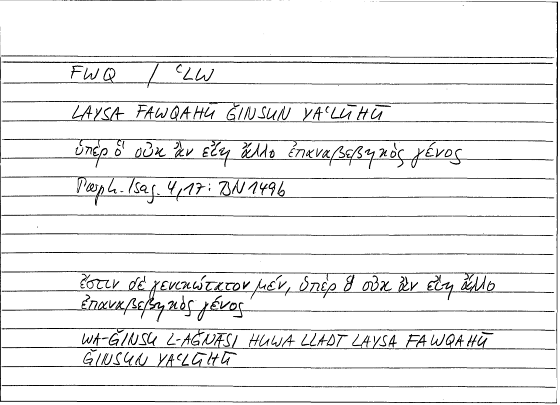 FWQ / ʿLW
LAYSA FAWQAHŪ ǦINSUN YAʿLŪHŪ
ὑπὲρ ὃ οὐκ ἂν εἴη ἄλλο ἐπαναβεβηκὸς γένος
Porph. Isag. 4,17: BN 149b
ἔστιν δὲ γενικώτατον μέν, ὑπὲρ ὃ οὐκ ἂν εἴη ἄλλο
ἐπαναβεβηκὸς γένος
WA-ǦINSU L-AǦNĀSI HUWA LLAḎĪ LAYSA FAWQAHŪ
ǦINSUN YAʿLŪHŪ